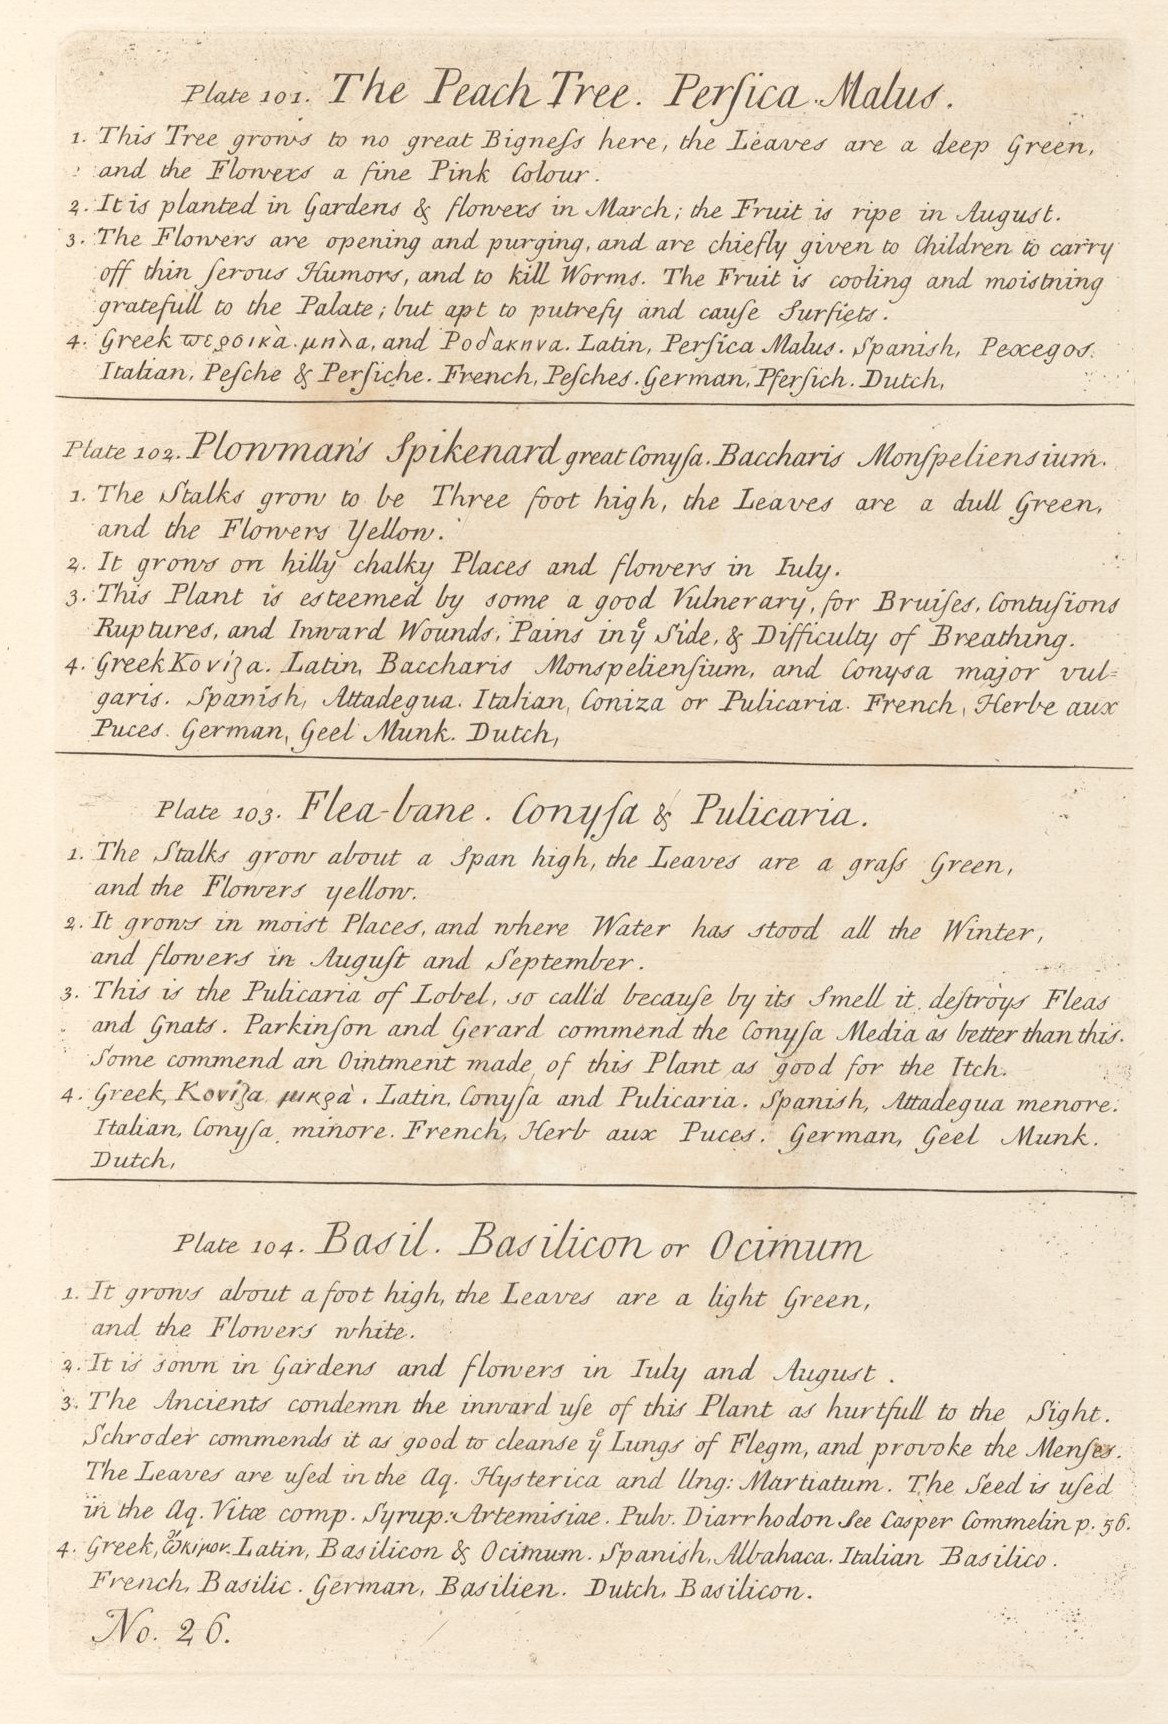 Plate 101. The Peach Tree. Perſica Malus.
1. This Tree grows to no great Bigneſs here, the Leaves are a deep Green,
and the Flowers a fine Pink Colour.
2. It is planted in Gardens & flowers in March; the Fruit is ripe in August.
3. The Flowers are opening and purging, and are chiefly given to Children to carry
off thin ſerous Humors, and to kill Worms. The Fruit is cooling and moistning
gratefull to the Palate; but apt to putrefy and cauſe Surfiets.
4. Greek ϖερσικὰ μηλα, and Ροδακηνα. Latin, Perſica Malus. Spanish, Pexegos.
Italian, Peſche & Perſiche. French, Peſches. German, Pferſich. Dutch,
Plate 102. Plowman's Spikenard great Conyſa. Baccharis Monſpeliensium.
1. The Stalks grow to be Three foot high, the Leaves are a dull Green,
and the Flowers Yellow.
2. It grows on hilly chalky Places and flowers in Iuly.
3. This Plant is esteemed by some a good Vulnerary, for Bruiſes, Contuſions
Ruptures, and Inward Wounds, Pains in yͤ Side, & Difficulty of Breathing.
4. Greek Κονιζα. Latin, Baccharis Monspelienſium, and Conysa major vul=
garis. Spanish, Attadegua. Italian, Coniza or Pulicaria. French, Herbe aux
Puces. German, Geel Munk. Dutch,
Plate 103. Flea-bane. Conyſa & Pulicaria.
1. The Stalks grow about a Span high, the Leaves are a graſs Green,
and the Flowers yellow.
2. It grows in moist Places, and where Water has stood all the Winter,
and flowers in Auguſt and September.
3. This is the Pulicaria of Lobel, so call'd becauſe by its Smell it deſtroys Fleas
and Gnats. Parkinſon and Gerard commend the Conyſa Media as better than this.
Some commend an Ointment made of this Plant as good for the Itch.
4. Greek, Κονίζα μικρὰ. Latin, Conyſa and Pulicaria. Spanish, Attadegua menore.
Italian, Conyſa minore. French, Herb aux Puces. German, Geel Munk.
Dutch,
Plate 104. Basil. Basilicon or Ocimum
1. It grows about a foot high, the Leaves are a light Green,
and the Flowers white.
2. It is sown in Gardens and flowers in Iuly and August.
3. The Ancients condemn the inward uſe of this Plant as hurtfull to the Sight.
Schroder commends it as good to cleanse yͤ Lungs of Flegm, and provoke the Menſes.
The Leaves are uſed in the Aq. Hysterica and Ung: Martiatum. The Seed is uſed
in the Aq. Vitæ comp. Syrup: Artemisiae. Pulv. Diarrhodon See Casper Commelin p. 56.
4. Greek, ὤκιμον. Latin, Basilicon & Ocimum. Spanish, Albahaca. Italian Basilico.
French, Basilic. German, Basilien. Dutch, Basilicon.
No. 26.